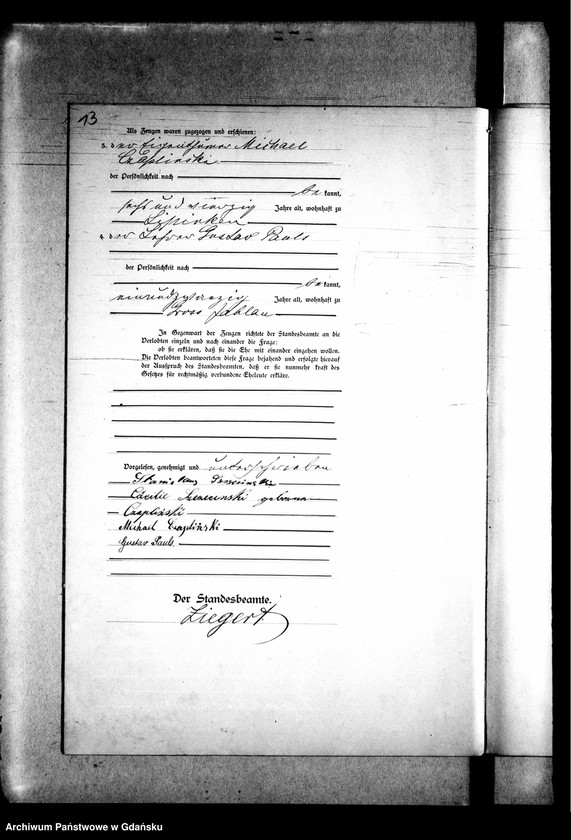 13
Als Zeugen waren zugezogen und erschienen:
3. der Eigenthümer Michael
Czaplinski
der Persönlichkeit nach
be kannt,
sechs und vierzig Jahre alt, wohnhaft zu
4. der Lehrer Gustav Pauls
der Persönlichkeit nach
be kannt,
einundzwanzig Jahre alt, wohnhaft zu
Gross Jablau
In Gegenwart der Zeugen richtete der Standesbeamte an die
Verlobten einzeln und nach einander die Frage:
ob sie erklären, daß sie die Ehe mit einander eingehen wollen.
Die Verlobten beantworteten diese Frage bejahend und erfolgte hierauf
der Ausspruch des Standesbeamten, daß er sie nunmehr kraft des
Gesetzes für rechtmäßig verbundene Eheleute erkläre.
Vorgelesen, genehmigt und unterschrieben
geborne
Czapliński
Michael Czapliński
Gustav Pauls.
Der Standesbeamte.
Ziegert
Archiwum Państwowe w Gdańsku